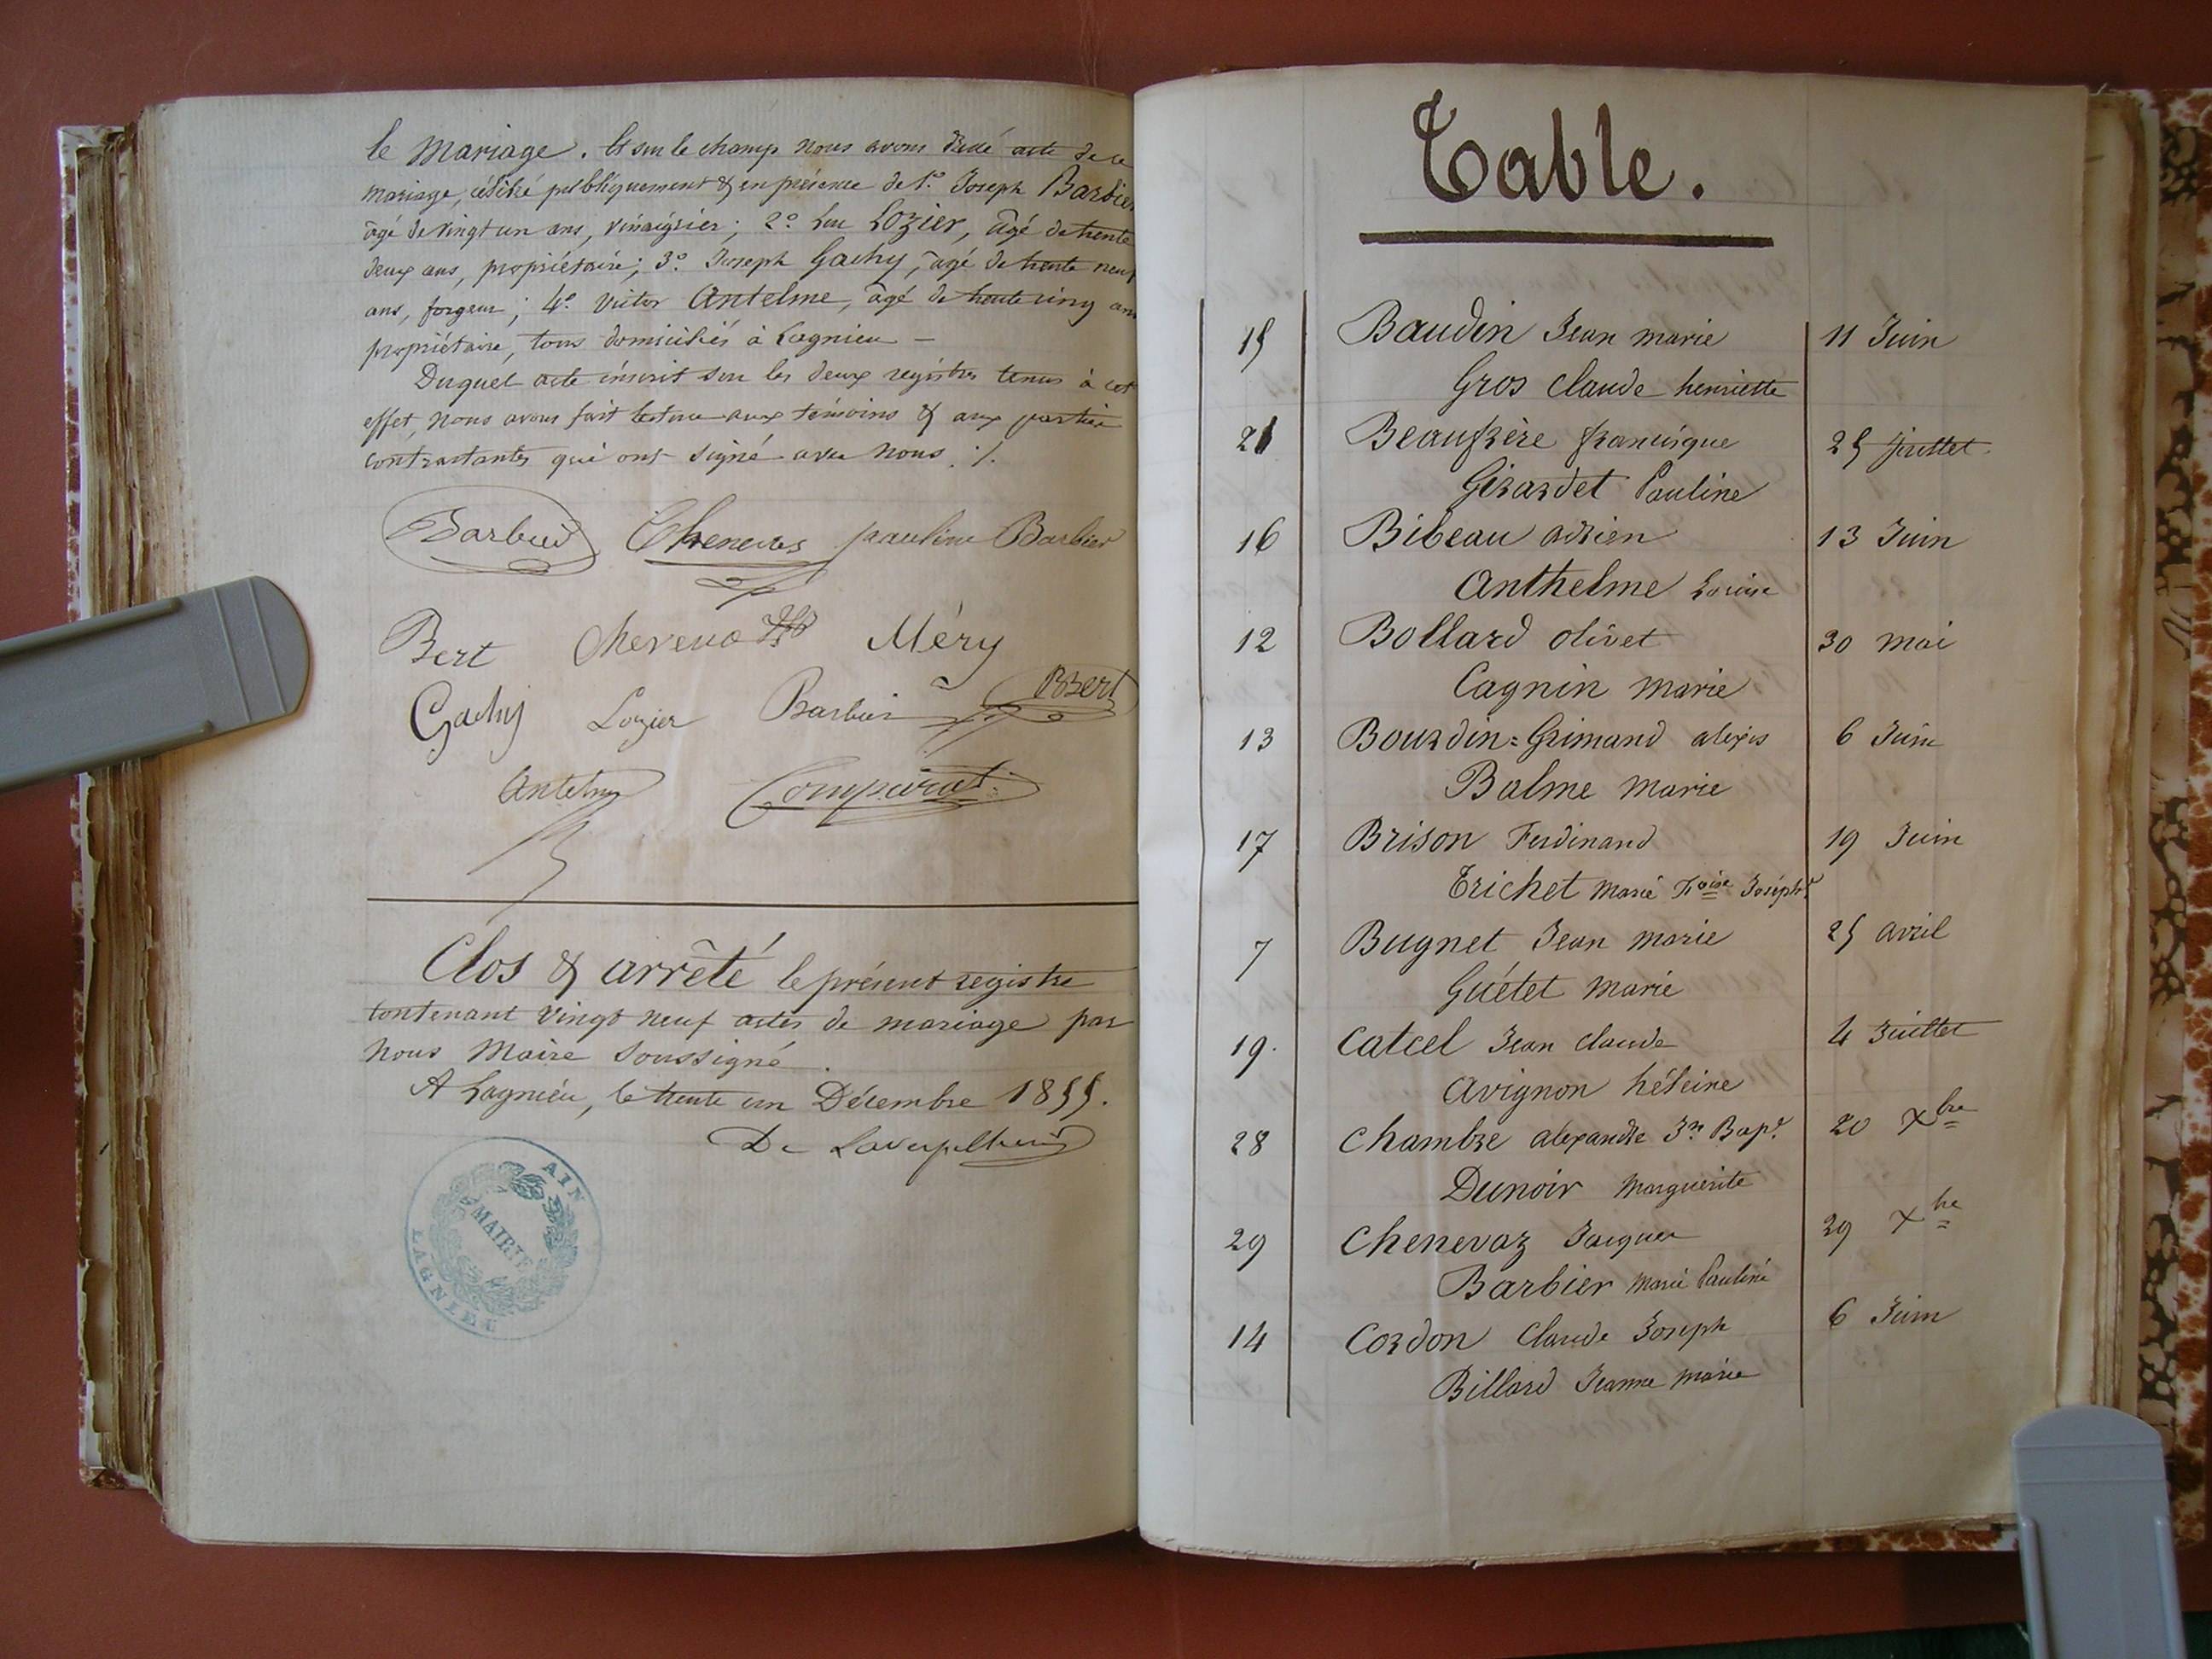 le Mariage. Et sur le champ nous avons dressé acte de ce
mariage, célébré publiquement & en présence de 1.º Joseph Barbier
âgé de vingt un ans, vinaigrier; 2.º Luc Lozier, âgé de trente
deux ans, propriétaire; 3.º Joseph Gachy, âgé de trente neuf
ans, forgeur; 4.º Victor Antelme, âgé de trente cinq ans
propriétaire, tous domiciliés à Lagnieu —
Duquel acte inscrit sur les deux registres tenus à cet
effet, nous avons fait lecture aux témoins & aux parties
contractantes qui ont signé avec nous ./.
Chenevas pauline Barbier
Bert Méry
Gachy Lozier Barbier BBert
Antelme Comparat
Clos & arrêté le présent registre
contenant vingt neuf actes de mariage par
nous Maire soussigné.
A Lagnieu, le trente un Décembre 1855.
AIN
MAIRIE
LAGNIEU
Table.
15 Baudin Jean marie 11 Juin
Gros Claude henriette
21 Beaufrère francisque 25 Juillet
Girardet Pauline
16 Bibeau adrien 13 Juin
Anthelme Louise
12 Bollard olivet 30 mai
Cagnin marie
13 Bourdin=Grimand alexis 6 Juin
Balme Marie
17 Brison Ferdinand 19 Juin
Trichet marie Foise Joséphe
7 Bugnet Jean marie 25 avril
Guétet Marie
19. Catcel Jean claude 4 Juillet
Avignon héleine
28 Chambre alexandre Jn Bapt. 20 Xbre
Dunoir Marguerite
29 Chenevaz Jacques 29 Xbre
Barbier marie Pauline
14 Cordon Claude Joseph 6 Juin
Billard Jeanne marie